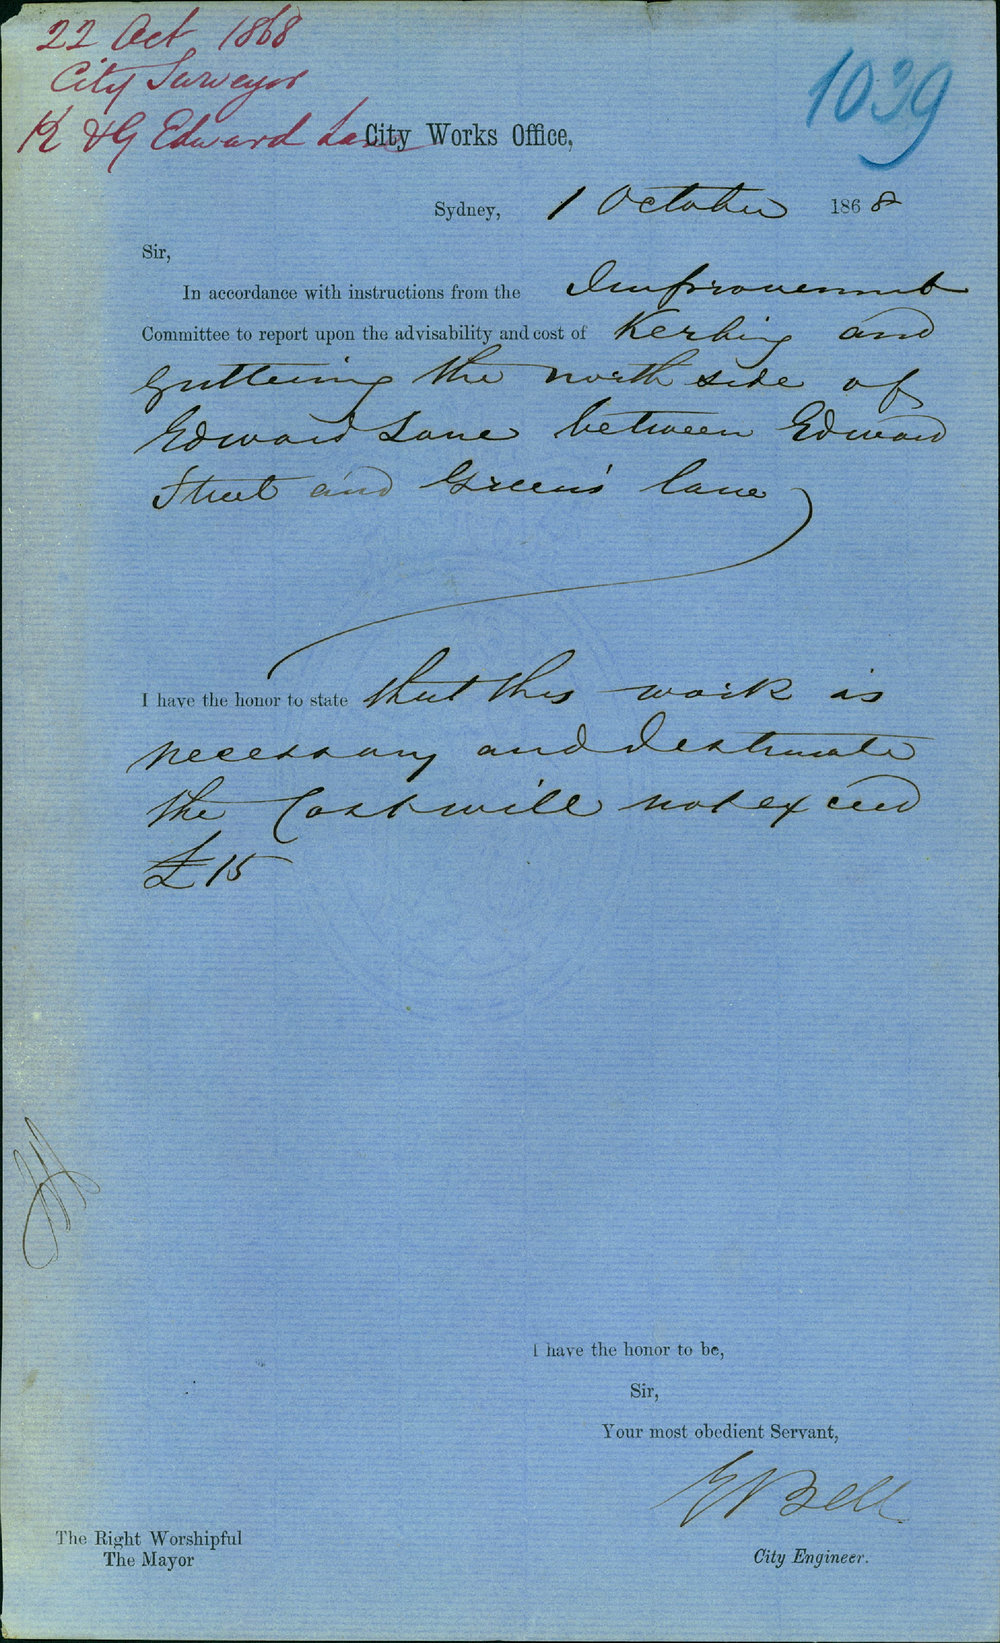 22 Oct 1868
City Surveyor
K & G Edward Lane
1039
City Works Office,
Sydney, 1 October 1868
Sir,
In accordance with instructions from the Improvement
Committee to report upon the advisability and cost of Kerbing and
guttering the north side of
Edward Lane between Edward
Street and Green's lane
I have the honor to state that this work is
necessary and I estimate
the Cost will not exceed
£15
I have the honor to be,
Sir,
Your most obedient Servant,
E Bell
City Engineer.
The Right Worshipful
The Mayor